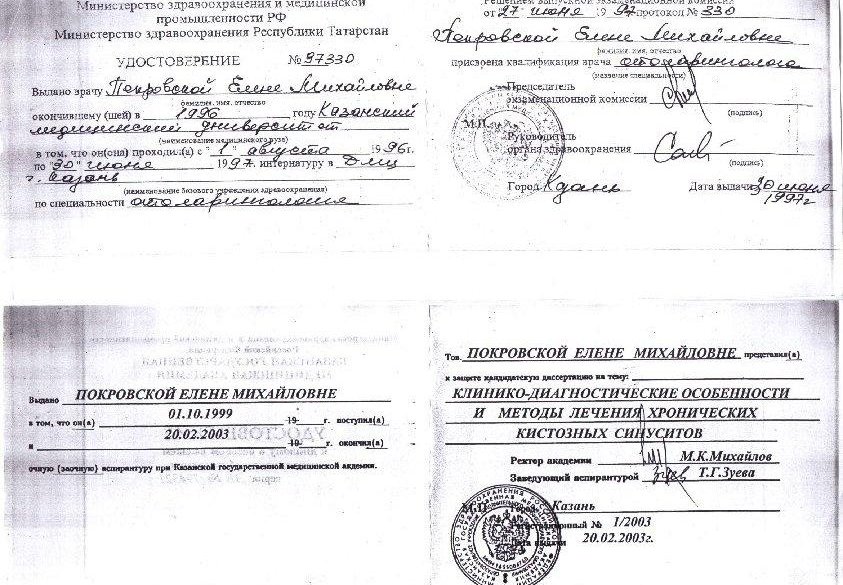 Министерство здравоохранения и медицинской
промышленности РФ
Министерство здравоохранения Республики Татарстан
УДОСТОВЕРЕНИЕ № 97330
Выдано врачу Покровской Елене Михайловне
фамилия, имя, отчество
окончившему (шей) в 1996 году Казанский
медицинский университет
(наименование медицинского вуза)
в том, что он(она) проходил(а) с "1" августа 1996г.
по "30" июня 1997г. интернатуру в
г. Казань
(наименование базового учреждения здравоохранения)
по специальности отоларингология
Решением выпускной экзаменационной комиссии
от 27 июня 1997 протокол № 330
Покровской Елене Михайловне
фамилия, имя, отчество
присвоена квалификация врача отоларинголога
(название специальности)
Председатель
экзаменационной комиссии
(подпись)
М.П.
Руководитель
органа здравоохранения
(подпись)
Город Казань Дата выдачи 30 июня
1997г
Выдано ПОКРОВСКОЙ ЕЛЕНЕ МИХАЙЛОВНЕ
в том, что он(а) 01.10.1999 19 г. поступил(а)
и 20.02.2003 19 г. окончил(а)
очную (заочную) аспирантуру при Казанской государственной медицинской академии.
Тов. ПОКРОВСКОЙ ЕЛЕНЕ МИХАЙЛОВНЕ представил(а)
к защите кандидатскую диссертацию на тему:
КЛИНИКО-ДИАГНОСТИЧЕСКИЕ ОСОБЕННОСТИ
И МЕТОДЫ ЛЕЧЕНИЯ ХРОНИЧЕСКИХ
КИСТОЗНЫХ СИНУСИТОВ
Ректор академии М.К.Михайлов
Заведующий аспирантурой Т.Г.Зуева
М.П. Город Казань
Регистрационный № 1/2003
Дата выдачи 20.02.2003г.